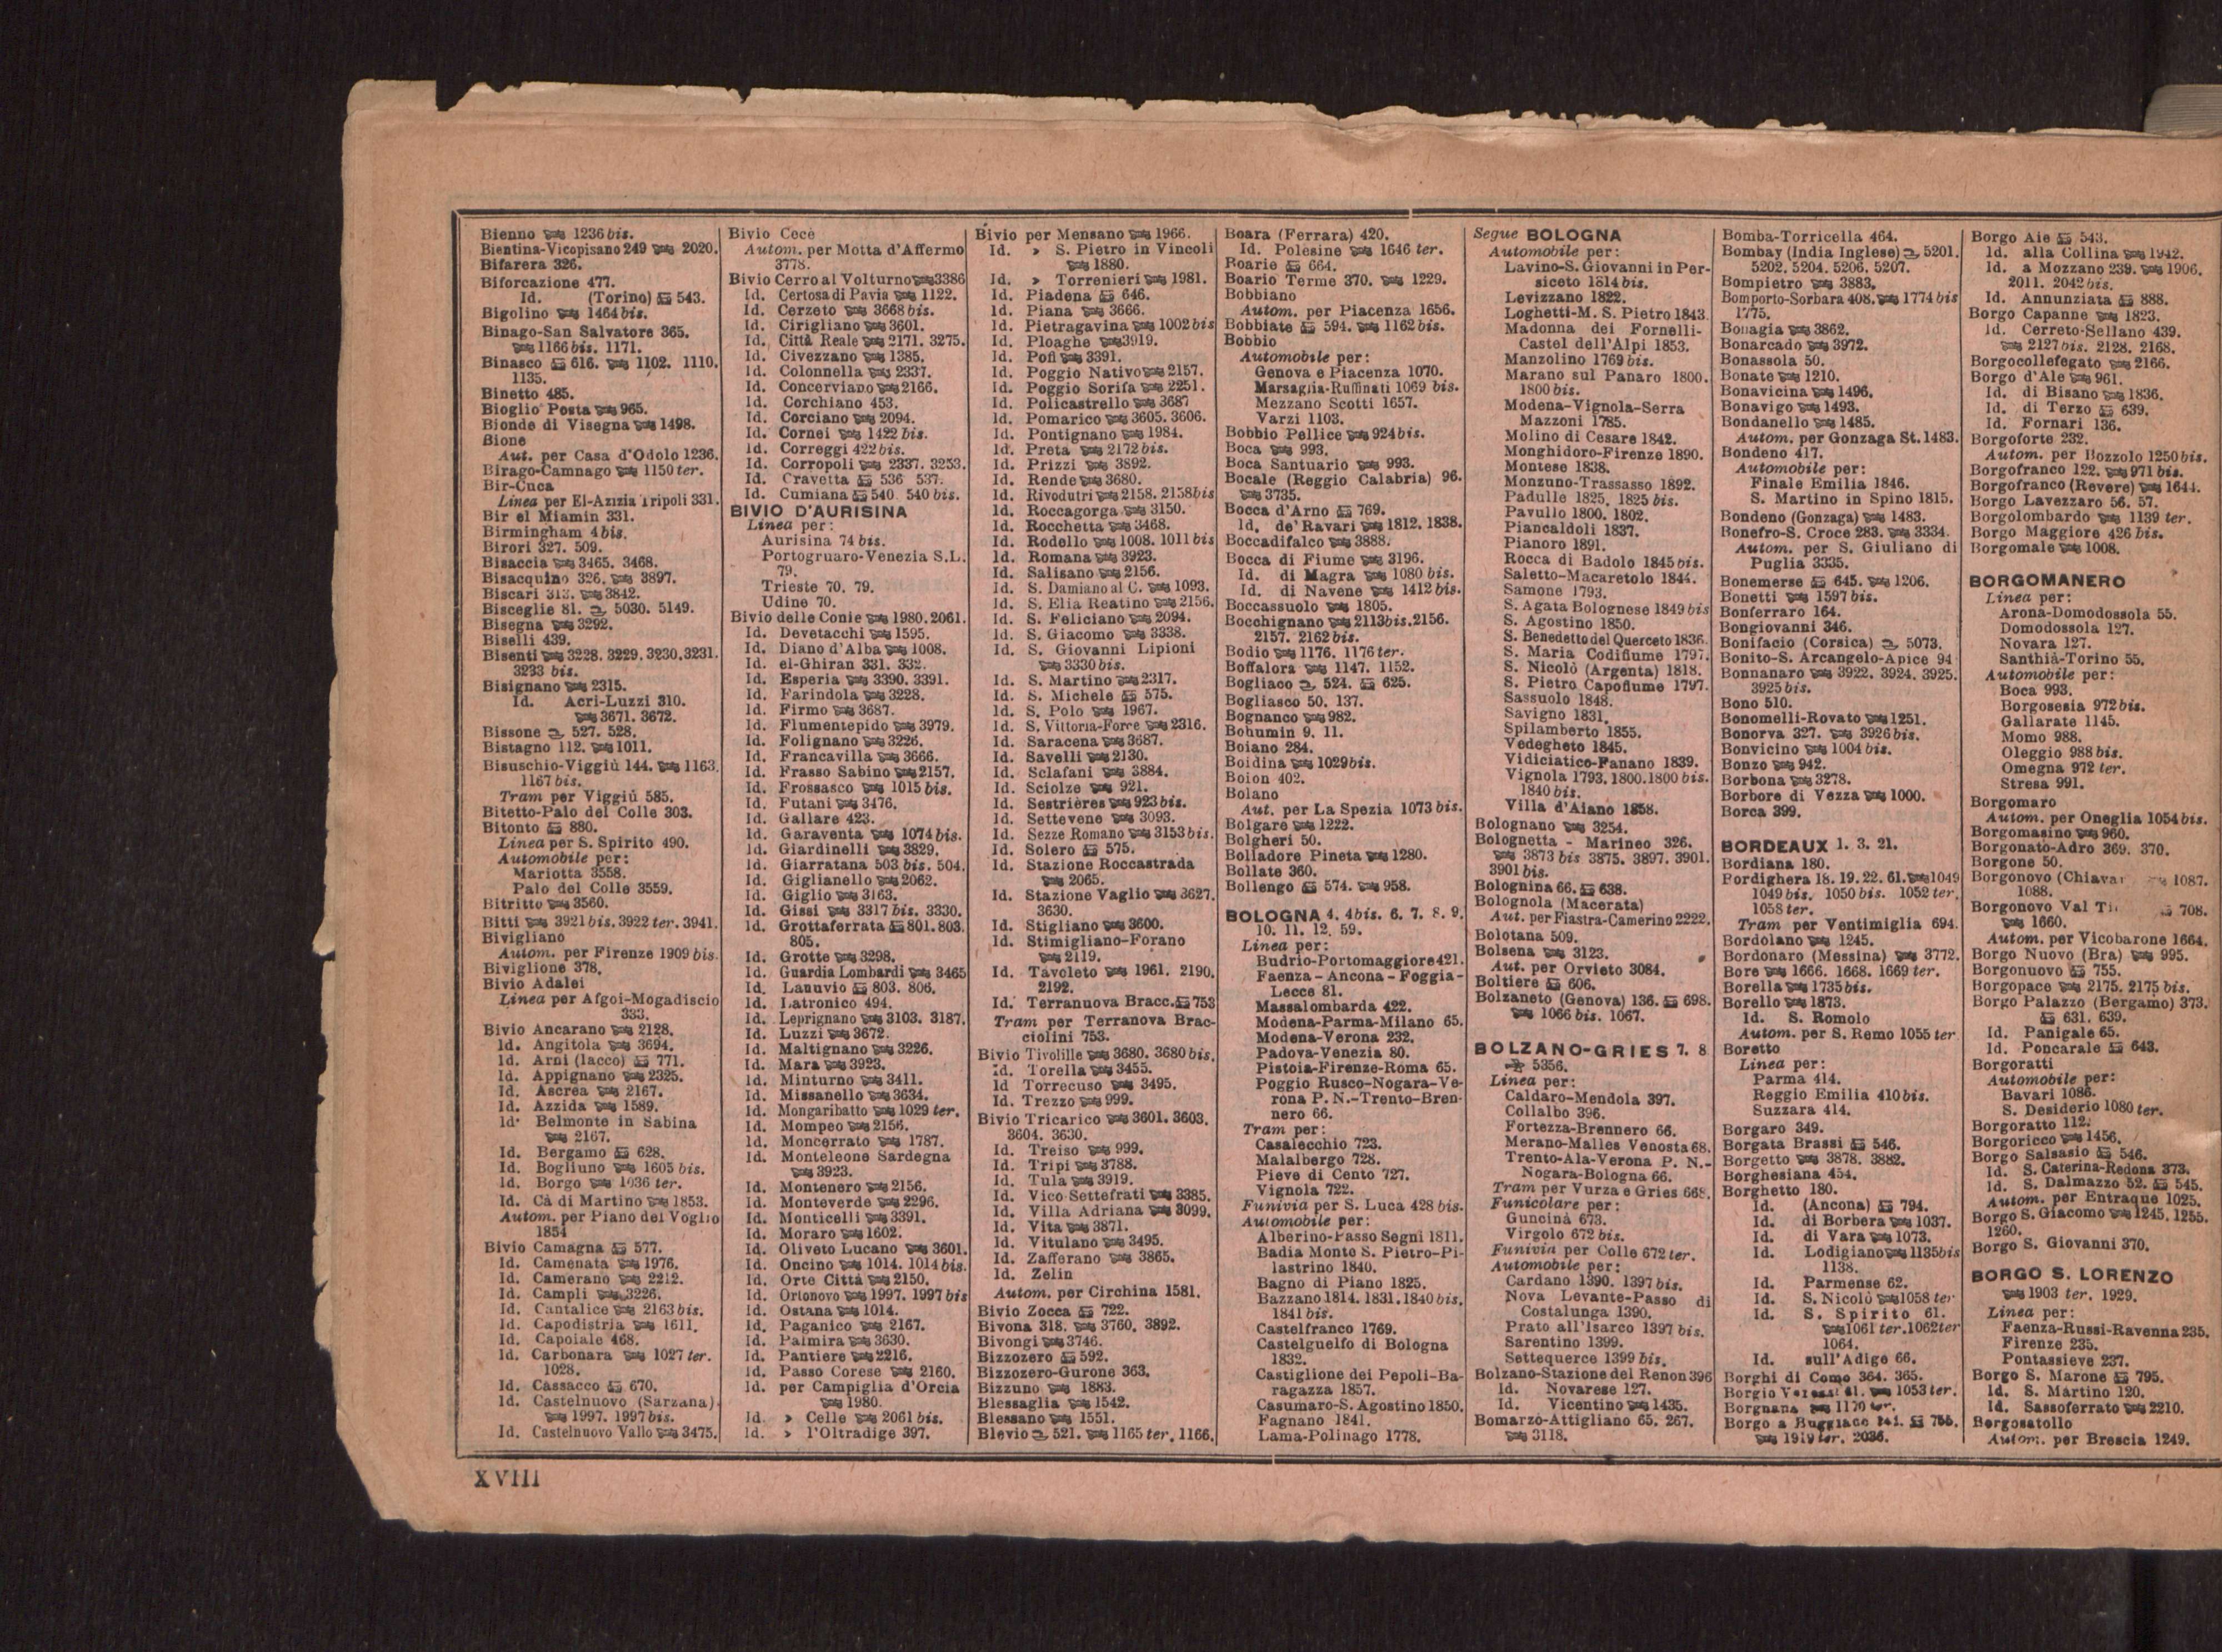 Bienno 1236 bis.
Bientina-Vicopisano 249 2020.
Bifarera 326.
Biforcazione 477.
Id. (Torino) 543.
Bigolino 1464 bis.
Binago-San Salvatore 365.
1166 bis. 1171.
Binasco 616. 1102. 1110.
1135.
Binetto 485.
Bioglio Posta 965.
Bionde di Visegna 1498.
Bione
Aut. per Casa d'Odolo 1236.
Birago-Camnago 1150 ter.
Bir-Cuca
Linea per El-Azizia Tripoli 331.
Bir el Miamin 331.
Birmingham 4 bis.
Birori 327. 509.
Bisaccia 3465. 3468.
Bisacquino 326. 3897.
Biscari 313. 3842.
Bisceglie 81. 5030. 5149.
Bisegna 3292.
Biselli 439.
Bisenti 3228. 3229. 3230. 3231.
3233 bis.
Bisignano 2315.
Id. Acri-Luzzi 310.
3671. 3672.
Bissone 527. 528.
Bistagno 112. 1011.
Bisuschio-Viggiù 144. 1163.
1167 bis.
Tram per Viggiù 585.
Bitetto-Palo del Colle 303.
Bitonto 880.
Linea per S. Spirito 490.
Automobile per:
Mariotta 3558.
Palo del Colle 3559.
Bitritto 3560.
Bitti 3921 bis. 3922 ter. 3941.
Bivigliano
Autom. per Firenze 1909 bis.
Biviglione 378.
Bivio Adalei
Linea per Afgoi-Mogadiscio
333.
Bivio Ancarano 2128.
Id. Angitola 3694.
Id. Arni (Iacco) 771.
Id. Appignano 2325.
Id. Ascrea 2167.
Id. Azzida 1589.
Id. Belmonte in Sabina
2167.
Id. Bergamo 628.
Id. Bogliuno 1605 bis.
Id. Borgo 1036 ter.
Id. Cà di Martino 1853.
Autom. per Piano del Voglio
1854
Bivio Camagna 577.
Id. Camenata 1976.
Id. Camerano 2212.
Id. Campli 3226.
Id. Cantalice 2163 bis.
Id. Capodistria 1611.
Id. Capoiale 468.
Id. Carbonara 1027 ter.
1028.
Id. Cassacco 670.
Id. Castelnuovo (Sarzana)
1997. 1997 bis.
Id. Castelnuovo Vallo 3475.
Bivio Cecè
Autom. per Motta d'Affermo
3778.
Bivio Cerro al Volturno 3386
Id. Certosa di Pavia 1122.
Id. Cerzeto 3668 bis.
Id. Cirigliano 3601.
Id. Città Reale 2171. 3275.
Id. Civezzano 1385.
Id. Colonnella 2337.
Id. Concerviano 2166.
Id. Corchiano 453.
Id. Corciano 2094.
Id. Cornei 1422 bis.
Id. Correggi 422 bis.
Id. Corropoli 2337. 3253.
Id. Cravetta 536 537.
Id. Cumiana 540. 540 bis.
BIVIO D'AURISINA
Linea per:
Aurisina 74 bis.
Portogruaro-Venezia S.L.
79.
Trieste 70. 79.
Udine 70.
Bivio delle Conie 1980. 2061.
Id. Devetacchi 1595.
Id. Diano d'Alba 1008.
Id. el-Ghiran 331. 332.
Id. Esperia 3390. 3391.
Id. Farindola 3228.
Id. Firmo 3687.
Id. Flumentepido 3979.
Id. Folignano 3226.
Id. Francavilla 3666.
Id. Frasso Sabino 2157.
Id. Frossasco 1015 bis.
Id. Futani 3476.
Id. Gallare 423.
Id. Garaventa 1074 bis.
Id. Giardinelli 3829.
Id. Giarratana 503 bis. 504.
Id. Giglianello 2062.
Id. Giglio 3163.
Id. Gissi 3317 bis. 3330.
Id. Grottaferrata 801. 803.
805.
Id. Grotte 3298.
Id. Guardia Lombardi 3465
Id. Lanuvio 803. 806.
Id. Latronico 494.
Id. Leprignano 3103. 3187.
Id. Luzzi 3672.
Id. Maltignano 3226.
Id. Mara 3923.
Id. Minturno 3411.
Id. Missanello 3634.
Id. Mongaribatto 1029 ter.
Id. Mompeo 2156.
Id. Moncerrato 1787.
Id. Monteleone Sardegna
3923.
Id. Montenero 2156.
Id. Monteverde 2296.
Id. Monticelli 3391.
Id. Moraro 1602.
Id. Oliveto Lucano 3601.
Id. Oncino 1014. 1014 bis.
Id. Orte Città 2150.
Id. Ortonovo 1997. 1997 bis
Id. Ostana 1014.
Id. Paganico 2167.
Id. Palmira 3630.
Id. Pantiere 2216.
Id. Passo Corese 2160.
Id. per Campiglia d'Orcia
1980.
Id. » Celle 2061 bis.
Id. » l'Oltradige 397.
Bivio per Mensano 1966.
Id. » S. Pietro in Vincoli
1880.
Id. » Torrenieri 1981.
Id. Piadena 646.
Id. Piana 3666.
Id. Pietragavina 1002 bis
Id. Ploaghe 3919.
Id. Pofi 3391.
Id. Poggio Nativo 2157.
Id. Poggio Sorifa 2251.
Id. Policastrello 3687
Id. Pomarico 3605. 3606.
Id. Pontignano 1984.
Id. Preta 2172 bis.
Id. Prizzi 3892.
Id. Rende 3680.
Id. Rivodutri 2158. 2158 bis
Id. Roccagorga 3150.
Id. Rocchetta 3468.
Id. Rodello 1008. 1011 bis
Id. Romana 3923.
Id. Salisano 2156.
Id. S. Damiano al C. 1093.
Id. S. Elia Reatino 2156.
Id. S. Feliciano 2094.
Id. S. Giacomo 3338.
Id. S. Giovanni Lipioni
3330 bis.
Id. S. Martino 2317.
Id. S. Michele 575.
Id. S. Polo 1967.
Id. S. Vittoria-Force 2316.
Id. Saracena 3687.
Id. Savelli 2130.
Id. Sclafani 3884.
Id. Sciolze 921.
Id. Sestrières 923 bis.
Id. Settevene 3093.
Id. Sezze Romano 3153 bis.
Id. Solero 575.
Id. Stazione Roccastrada
2065.
Id. Stazione Vaglio 3627.
3630.
Id. Stigliano 3600.
Id. Stimigliano-Forano
2119.
Id. Tavoleto 1961. 2190.
2192.
Id. Terranuova Bracc. 753
Tram per Terranova Brac-
ciolini 753.
Bivio Tivolille 3680. 3680 bis.
Id. Torella 3455.
Id Torrecuso 3495.
Id. Trezzo 999.
Bivio Tricarico 3601. 3603.
3604. 3630.
Id. Treiso 999.
Id. Tripi 3788.
Id. Tula 3919.
Id. Vico Settefrati 3385.
Id. Villa Adriana 3099.
Id. Vita 3871.
Id. Vitulano 3495.
Id. Zafferano 3865.
Id. Zelin
Autom. per Circhina 1581.
Bivio Zocca 722.
Bivona 318. 3760. 3892.
Bivongi 3746.
Bizzozero 592.
Bizzozero-Gurone 363.
Bizzuno 1883.
Blessaglia 1542.
Blessano 1551.
Blevio 521. 1165 ter. 1166.
Boara (Ferrara) 420.
Id. Polesine 1646 ter.
Boarie 664.
Boario Terme 370. 1229.
Bobbiano
Autom. per Piacenza 1656.
Bobbiate 594. 1162 bis.
Bobbio
Automobile per:
Genova e Piacenza 1070.
Marsaglia-Ruffinati 1069 bis.
Mezzano Scotti 1657.
Varzi 1103.
Bobbio Pellice 924 bis.
Boca 993.
Boca Santuario 993.
Bocale (Reggio Calabria) 96.
3735.
Bocca d'Arno 769.
Id. de' Ravari 1812. 1838.
Boccadifalco 3888.
Bocca di Fiume 3196.
Id. di Magra 1080 bis.
Id. di Navene 1412 bis.
Boccassuolo 1805.
Bocchignano 2113 bis. 2156.
2157. 2162 bis.
Bodio 1176. 1176 ter.
Boffalora 1147. 1152.
Bogliaco 524. 625.
Bogliasco 50. 137.
Bognanco 982.
Bohumin 9. 11.
Boiano 284.
Boidina 1029 bis.
Boion 402.
Bolano
Aut. per La Spezia 1073 bis.
Bolgare 1222.
Bolgheri 50.
Bolladore Pineta 1280.
Bollate 360.
Bollengo 574. 958.
BOLOGNA 4. 4 bis. 6. 7. 8. 9.
10. 11. 12. 59.
Linea per:
Budrio-Portomaggiore 421.
Faenza-Ancona-Foggia-
Lecce 81.
Massalombarda 422.
Modena-Parma-Milano 65.
Modena-Verona 232.
Padova-Venezia 80.
Pistoia-Firenze-Roma 65.
Poggio Rusco-Nogara-Ve-
rona P. N.-Trento-Bren-
nero 66.
Tram per:
Casalecchio 723.
Malalbergo 728.
Pieve di Cento 727.
Vignola 722.
Funivia per S. Luca 428 bis.
Automobile per:
Alberino-Passo Segni 1811.
Badia Monte S. Pietro-Pi-
lastrino 1840.
Bagno di Piano 1825.
Bazzano 1814. 1831. 1840 bis.
1841 bis.
Castelfranco 1769.
Castelguelfo di Bologna
1832.
Castiglione dei Pepoli-Ba-
ragazza 1857.
Casumaro-S. Agostino 1850.
Fagnano 1841.
Lama-Polinago 1778.
Segue BOLOGNA
Automobile per:
Lavino-S. Giovanni in Per-
siceto 1814 bis.
Levizzano 1822.
Loghetti-M. S. Pietro 1843.
Madonna dei Fornelli-
Castel dell'Alpi 1853.
Manzolino 1769 bis.
Marano sul Panaro 1800.
1800 bis.
Modena-Vignola-Serra
Mazzoni 1785.
Molino di Cesare 1842.
Monghidoro-Firenze 1890.
Montese 1838.
Monzuno-Trassasso 1892.
Padulle 1825. 1825 bis.
Pavullo 1800. 1802.
Piancaldoli 1837.
Pianoro 1891.
Rocca di Badolo 1845 bis.
Saletto-Macaretolo 1844.
Samone 1793.
S. Agata Bolognese 1849 bis
S. Agostino 1850.
S. Benedetto del Querceto 1836.
S. Maria Codifiume 1797.
S. Nicolò (Argenta) 1818.
S. Pietro Capofiume 1797.
Sassuolo 1848.
Savigno 1831.
Spilamberto 1855.
Vedegheto 1845.
Vidiciatico-Fanano 1839.
Vignola 1793. 1800. 1800 bis.
1840 bis.
Villa d'Aiano 1858.
Bolognano 3254.
Bolognetta - Marineo 326.
3873 bis 3875. 3897. 3901.
3901 bis.
Bolognina 66. 638.
Bolognola (Macerata)
Aut. per Fiastra-Camerino 2222.
Bolotana 509.
Bolsena 3123.
Aut. per Orvieto 3084.
Boltiere 606.
Bolzaneto (Genova) 136. 698.
1066 bis. 1067.
BOLZANO-GRIES 7. 8
5356.
Linea per:
Caldaro-Mendola 397.
Collalbo 396.
Fortezza-Brennero 66.
Merano-Malles Venosta 68.
Trento-Ala-Verona P. N.-
Nogara-Bologna 66.
Tram per Vurza e Gries 668.
Funicolare per:
Guncinà 673.
Virgolo 672 bis.
Funivia per Colle 672 ter.
Automobile per:
Cardano 1390. 1397 bis.
Nova Levante-Passo di
Costalunga 1390.
Prato all'Isarco 1397 bis.
Sarentino 1399.
Settequerce 1399 bis.
Bolzano-Stazione del Renon 396
Id. Novarese 127.
Id. Vicentino 1435.
Bomarzo-Attigliano 65. 267.
3118.
Bomba-Torricella 464.
Bombay (India Inglese) 5201.
5202. 5204. 5206. 5207.
Bompietro 3883.
Bomporto-Sorbara 408. 1774 bis
1775.
Bonagia 3862.
Bonarcado 3972.
Bonassola 50.
Bonate 1210.
Bonavicina 1496.
Bonavigo 1493.
Bondanello 1485.
Autom. per Gonzaga St. 1483.
Bondeno 417.
Automobile per:
Finale Emilia 1846.
S. Martino in Spino 1815.
Bondeno (Gonzaga) 1483.
Bonefro-S. Croce 283. 3334.
Autom. per S. Giuliano di
Puglia 3335.
Bonemerse 645. 1206.
Bonetti 1597 bis.
Bonferraro 164.
Bongiovanni 346.
Bonifacio (Corsica) 5073.
Bonito-S. Arcangelo-Apice 94
Bonnanaro 3922. 3924. 3925.
3925 bis.
Bono 510.
Bonomelli-Rovato 1251.
Bonorva 327. 3926 bis.
Bonvicino 1004 bis.
Bonzo 942.
Borbona 3278.
Borbore di Vezza 1000.
Borca 399.
BORDEAUX 1. 3. 21.
Bordiana 180.
Bordighera 18. 19. 22. 61. 1049
1049 bis. 1050 bis. 1052 ter.
1058 ter.
Tram per Ventimiglia 694.
Bordolano 1245.
Bordonaro (Messina) 3772.
Bore 1666. 1668. 1669 ter.
Borella 1735 bis.
Borello 1873.
Id. S. Romolo
Autom. per S. Remo 1055 ter
Boretto
Linea per:
Parma 414.
Reggio Emilia 410 bis.
Suzzara 414.
Borgaro 349.
Borgata Brassi 546.
Borgetto 3878. 3882.
Borghesiana 454.
Borghetto 180.
Id. (Ancona) 794.
Id. di Borbera 1037.
Id. di Vara 1073.
Id. Lodigiano 1135 bis
1138.
Id. Parmense 62.
Id. S. Nicolò 1058 ter
Id. S. Spirito 61.
1061 ter. 1062 ter
1064.
Id. sull'Adige 66.
Borghi di Como 364. 365.
Borgio 61. 1053 ter.
Borgnana
Borgo a Buggiano 755.
1919 ter. 2036.
Borgo Aie 543.
Id. alla Collina 1942.
Id. a Mozzano 239. 1906.
2011. 2042 bis.
Id. Annunziata 888.
Borgo Capanne 1823.
Id. Cerreto-Sellano 439.
2127 bis. 2128. 2168.
Borgocollefegato 2166.
Borgo d'Ale 961.
Id. di Bisano 1836.
Id. di Terzo 639.
Id. Fornari 136.
Borgoforte 232.
Autom. per Bozzolo 1250 bis.
Borgofranco 122. 971 bis.
Borgofranco (Revere) 1644.
Borgo Lavezzaro 56. 57.
Borgolombardo 1139 ter.
Borgo Maggiore 426 bis.
Borgomale 1008.
BORGOMANERO
Linea per:
Arona-Domodossola 55.
Domodossola 127.
Novara 127.
Santhià-Torino 55.
Automobile per:
Boca 993.
Borgosesia 972 bis.
Gallarate 1145.
Momo 988.
Oleggio 988 bis.
Omegna 972 ter.
Stresa 991.
Borgomaro
Autom. per Oneglia 1054 bis.
Borgomasino 960.
Borgonato-Adro 369. 370.
Borgone 50.
Borgonovo 1087.
1088.
Borgonovo Val 708.
1660.
Autom. per Vicobarone 1664.
Borgo Nuovo (Bra) 995.
Borgonuovo 755.
Borgopace 2175. 2175 bis.
Borgo Palazzo (Bergamo) 373.
631. 639.
Id. Panigale 65.
Id. Poncarale 643.
Borgoratti
Automobile per:
Bavari 1086.
S. Desiderio 1080 ter.
Borgoratto 112.
Borgoricco 1456.
Borgo Salsasio 546.
Id. S. Caterina-Redona 373.
Id. S. Dalmazzo 52. 545.
Autom. per Entraque 1025.
Borgo S. Giacomo 1245. 1255.
1260.
Borgo S. Giovanni 370.
BORGO S. LORENZO
1903 ter. 1929.
Linea per:
Faenza-Russi-Ravenna 235.
Firenze 235.
Pontassieve 237.
Borgo S. Marone 795.
Id. S. Martino 120.
Id. Sassoferrato 2210.
Borgosatollo
Autom. per Brescia 1249.
XVIII